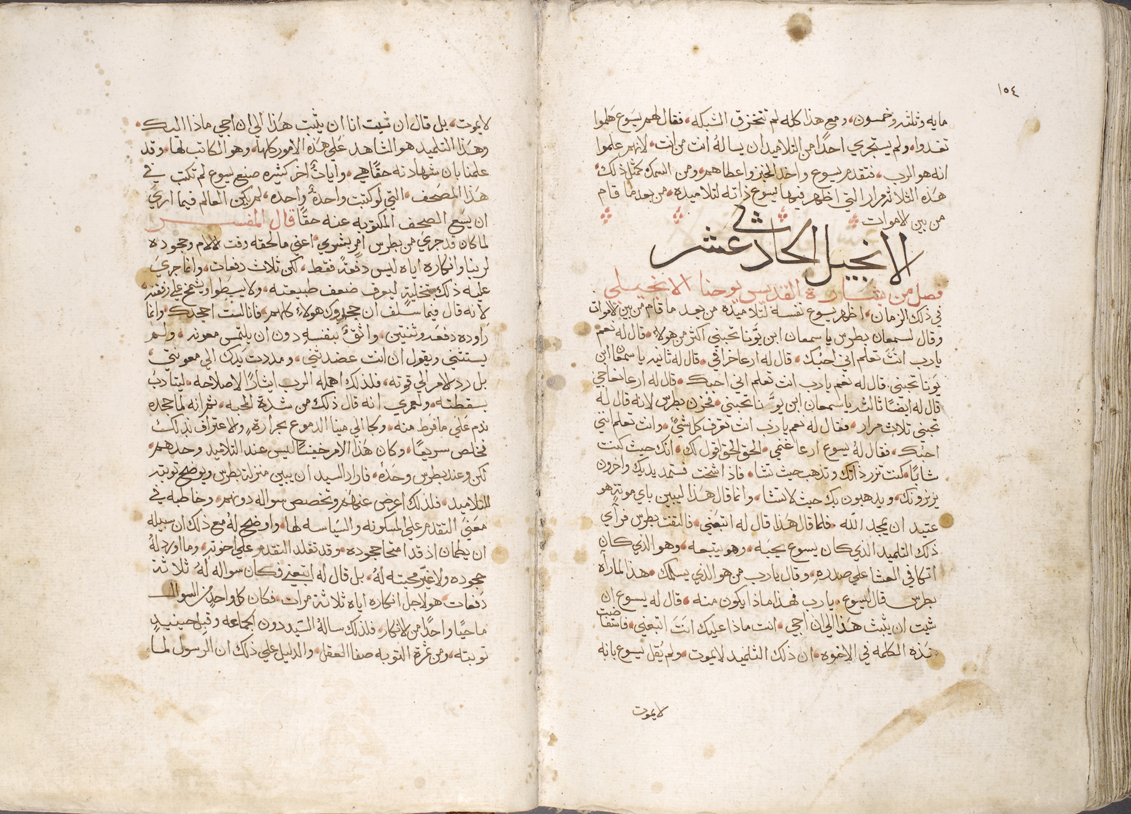 ١٥٤
مايه وثلثه وخمسون، ومع هذا كله لم تتخرق الشبكه، فقال لهم يسوع هلموا
تغدوا، ولم يستجري احدًا من التلاميذ ان يسالهُ انت من انت، لانهم علموا
انه هو الرب، فتقدم يسوع واخذ الخبز واعطاهم، ومن السمك كمثل ذلك،
هذه الثلاثة مرار التي اظهر فيها يسوع ذاته لتلاميذه، من بعد ما قام
من بين الاموات
الانجيل الحادي عشر
فصل من بشارة القديس يوحنا الانجيلي
في ذلك الزمان، اظهر يسوع نفسه لتلاميذه من بعد ما قام من بين الاموات
وقال لسمعان بطرس يا سمعان ابن يونا تحبني اكثر من هولاء، قال له نعم
يارب انت تعلم اني احبك، قال له ارعا خرافي، قال له ثانيه يا سمعان ابن
يونا تحبني، قال له نعم يارب انت تعلم اني احبك، قال له ارعا نعاجي
قال له ايضًا ثالثه يا سمعان ابن يونا تحبني، فحزن بطرس لانه قال له
تحبني ثلاث مرار، فقال له نعم يارب انت تعرف كل شي، وانت تعلم اني
احبك، فقال له يسوع ارعا غنمي، الحق الحق اقول لك، انك حيث كنت
شابًا كنت تزر ذاتك وتذهب حيث تشا، فاذا شخت فستمد يديك واخرون
يزرونك، ويذهبون بك حيث لا تشا، وانما قال هذا ليبين باي موته هو
عتيد ان يمجد الله، فلما قال هذا قال له اتبعني، فالتفت بطرس فراي
ذلك التلميذ الذي كان يسوع يحبه، وهو يتبعه، وهو الذي كان
اتكا في العشا علي صدره، وقال يارب من هو الذي يسلمك، هذا لما رآه
بطرس قال ليسوع، يارب فهذا ماذا يكون منه، قال له يسوع ان
شيت ان يثبت هذا الي ان اجي، انت ماذا عليك انت اتبعني، فاستفاضت
هذه الكلمه في الاخوه، ان ذلك التلميذ لا يموت، ولم يقل يسوع بانه
لا يموت
لا يموت، بل قال ان شيت انا ان يثبت هذا الي ان اجي ماذا اليك،
وهذا التلميذ هو الشاهد علي هذه الامور كلها، وهو الكاتب لها، وقد
علمنا بان شهادته حقًا هي، وايات اخر كثيره صنع يسوع لم تكتب في
هذا المصحف، التي لو كتبت واحدةً واحده، لم يكن العالم فيما اري
ان يسع المصحف المكتوبه عنه حقًا قال المفسر
لما كان قد جري من بطرس امر بشري، اعني ما لحقه وقت الالام وجحوده
لربنا وانكاره اياه ليس دفعةً فقط، لكن ثلاث دفعات، وانما جري
عليه ذلك بتخلية ليعرف ضعف طبيعته، ولا يسطوا ويشمخ علي رفقته
لانه قال فيما سلف ان جحدوك هولاء كلهم، فانا لست اجحدك، وانما
راوده دفعه وثنتين، واثق بنفسه دون ان يلتمس معونه، ولم
يستثني ويقول ان انت عضدتني، ومددت يدك الي معونتي،
بل رد الامر الي قوته، فلذلك اهمله الرب ايثارًا لاصلاحه، ليتادب
بسقطته، ولعمري انه قال ذلك من شدة المحبه، ثم انه لما جحده
ندم علي ما فرط منه، وبكا الي مينا الدموع بحراره، والاعتراف بذلك
فخلص سريعًا، وكان هذا الامر خفيًا ليس عند التلاميذ وحدهم،
لكن وعند بطرس وحده، فاراد السيد ان يبين منزلة بطرس ويوضح توبته
للتلاميذ، فلذلك اعرض عنهم وتخصص سواله دونهم، وخاطبه في
معنيُ التقدم علي المسكونه والسياسه لها، واوضح لهُ مع ذلك ان سبيله
ان يطمان اذ قد امتحا جحوده، وقد تقلد التقدم علي اخوته، وما اورد لهُ
جحوده ولا عيّر محبته لهُ، بل قال له اتبعني فكان سواله لهُ ثلاثة
دفعات، هو لاجل انكاره اياه ثلاثة مرات، فكان كل واحد من السوال
ماحيًا واحدًا من الانكار، فلذلك سالهُ السيد دون الجماعه وقبل حينيذٍ
توبته، ومن ثمرة التوبه صفا العقل، والدليل علي ذلك ان الرسول لما